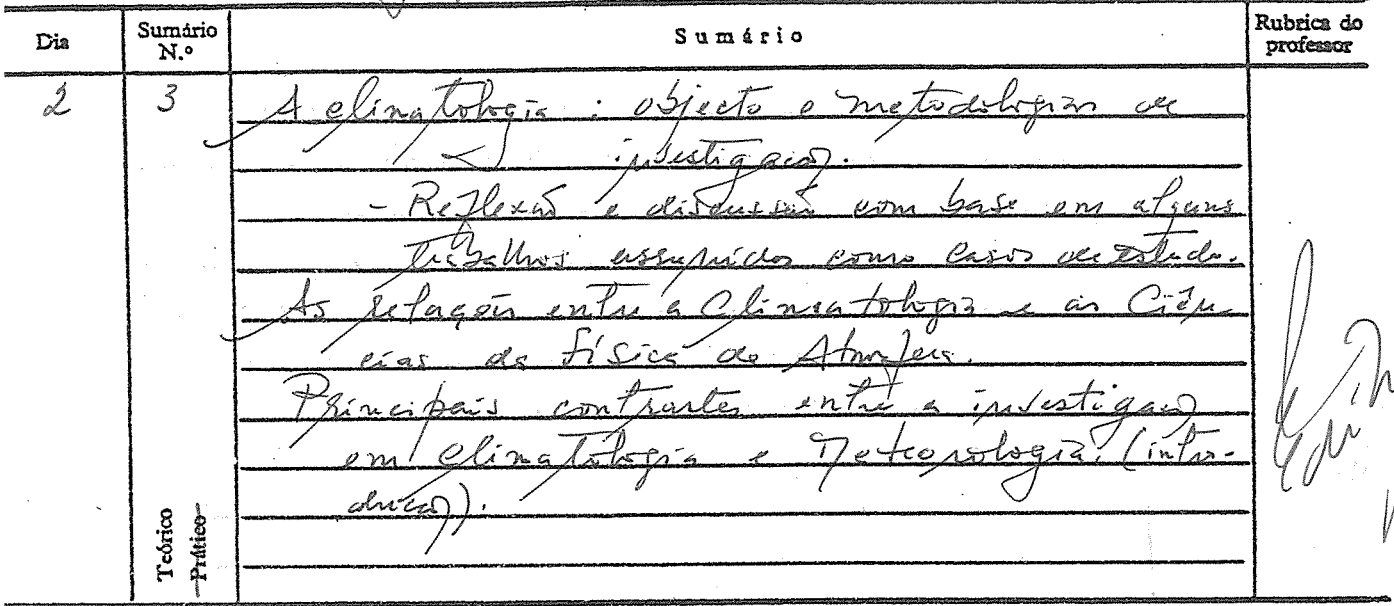 Dia
Sumário N.º
Sumário
Rubrica do professor
2
3
A climatologia: objecto e metodologias de
investigação.
- Reflexão e discussão com base em alguns
trabalhos assumidos como casos de estudo.
As relações entre a Climatologia e as Ciên-
cias da Física da Atmosfera.
Principais contrastes entre a investigação
em climatologia e Meteorologia. (intro-
dução).
Teórico
Prático